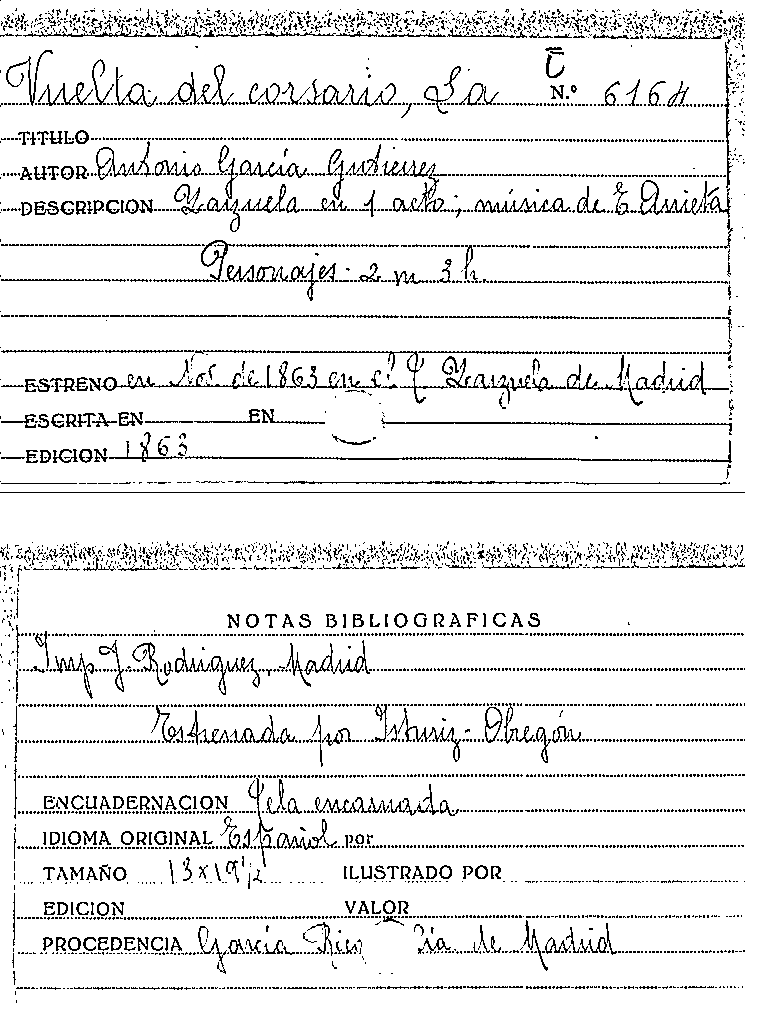 Vuelta del corsario, La
N.º 6164
TITULO
AUTOR Antonio García Gutierrez
DESCRIPCION Zarzuela en 1 acto; música de E. Arrieta
Personajes - 2 m 3 h.
ESTRENO en Nov. de 1863 en el T. Zarzuela de Madrid
ESCRITA EN EN
EDICION 1863
NOTAS BIBLIOGRAFICAS
Imp J. Rodriguez, Madrid
Estrenada por Isturiz - Obregón
ENCUADERNACION Tela encarnada
IDIOMA ORIGINAL Español por
TAMAÑO 13 x 19 1/2 ILUSTRADO POR
EDICION VALOR
PROCEDENCIA García Rico de Madrid